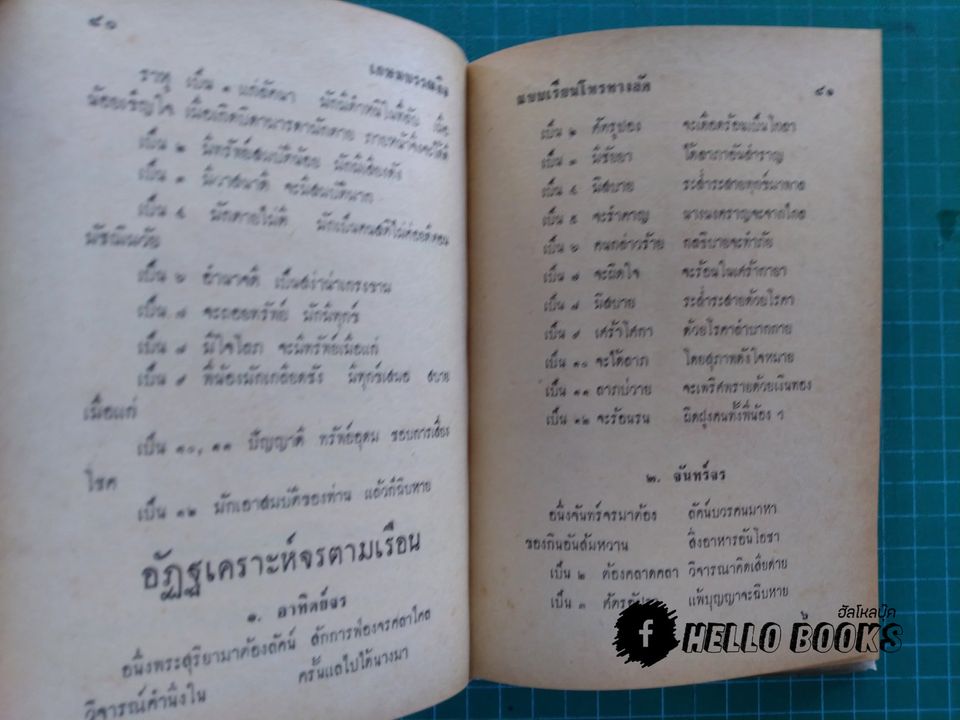 ๔๐
เกษมบรรณกิจ
ราหู เป็น ๑ แก่ลัคนา มักมีตำหนิในที่ลับ เนื้อ
น้อยเชิญใจ เมื่อเกิดบิดามารดามักตาย
เป็น ๒ มีทรัพย์สมบัติน้อย มักมีเสียงดัง
เป็น ๓ มีวาสนาดี จะมีสมบัติมาก
เป็น ๕ มักตายไม่ดี มักเป็นคนสติไม่ค่อยดีตอน
มัชฌิมวัย
เป็น ๖ อำนาจดี เป็นสง่าน่าเกรงขาม
เป็น ๗ จะถอยทรัพย์ มักมีทุกข์
เป็น ๘ มีใจโลภ จะมีทรัพย์เมื่อแก่
เป็น ๙ พี่น้องมักเกลียดชัง มีทุกข์เสมอ สบาย
เมื่อแก่
เป็น ๑๐, ๑๑ ปัญญาดี ทรัพย์อุดม ชอบการเสี่ยง
โชค
เป็น ๑๒ มักเอาสมบัติของท่าน แล้วก็ฉิบหาย
อัฏฐเคราะห์จรตามเรือน
๑. อาทิตย์จร
อนึ่งพระสุริยามาต้องลัคน์ ลักการฟ้องจรคลาไคล
วิจารณ์คำนึงใน ครั้นแลไปได้นางมา
แบบเรียนโหรทางลัด
๔๑
เป็น ๒ ศัตรูปอง จะเดือดร้อนเป็นไกลา
เป็น ๓ มีชัยยา ได้ลาภาอันสำราญ
เป็น ๔ มิสบาย ระส่ำระสายทุกข์นาคาล
เป็น ๕ จะรำคาญ นางนงคราญจะจากไกล
เป็น ๖ คนกล่าวร้าย กลอิบายจะทำภัย
เป็น ๗ จะผิดใจ จะร้อนในเศร้ากายา
เป็น ๘ มิสบาย ระส่ำระสายด้วยโรคา
เป็น ๙ เศร้าโศกา ด้วยโรคาลำบากกาย
เป็น ๑๐ จะได้ลาภ โดยสุภาพดังใจหมาย
เป็น ๑๑ ลาภบ่วาย จะเพริศพรายด้วยเงินทอง
เป็น ๑๒ จะร้อนรน ผิดฝูงคนทั้งพี่น้อง ฯ
๒. จันทร์จร
อนึ่งจันทร์จรมาต้อง ลัคน์บวรคนมาหา
ของกินอันส้มหวาน สิ่งอาหารอันโอชา
เป็น ๒ ต้องคลาดคลา วิจารณาคิดเสียดาย
เป็น ๓ แพ้บุญญาจะฉิบหาย
๖
ฮัลโหลบุ๊ค
HELLO BOOKS